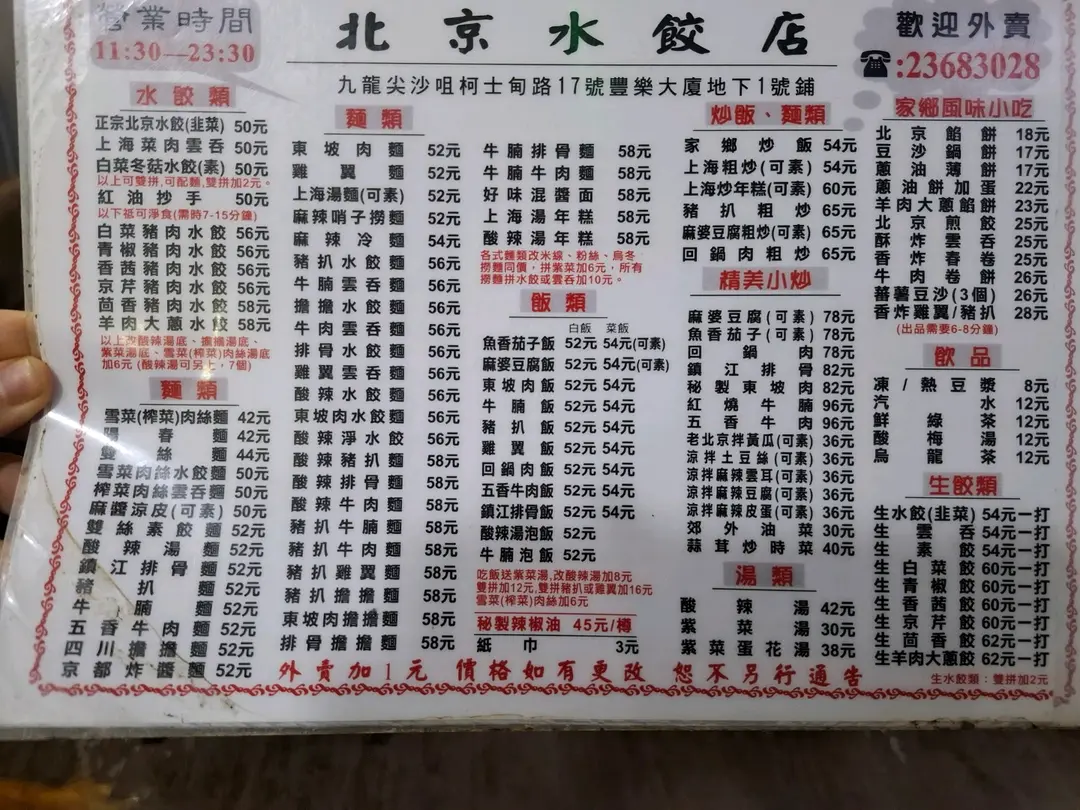 營業時間
11:30—23:30
北京水餃店
九龍尖沙咀柯士甸路17號豐樂大廈地下1號鋪
歡迎外賣
☎:23683028
水餃類
正宗北京水餃(韭菜) 50元
上海菜肉雲吞 50元
白菜冬菇水餃(素) 50元
以上可雙拼,可配麵,雙拼加2元。
紅油抄手 50元
以下祗可淨食(需時7-15分鐘)
白菜豬肉水餃 56元
青椒豬肉水餃 56元
香茜豬肉水餃 56元
京芹豬肉水餃 56元
茴香豬肉水餃 58元
羊肉大蔥水餃 58元
以上改酸辣湯底、擔擔湯底、
紫菜湯底、雪菜(榨菜)肉絲湯底
加6元 (酸辣湯可另上,7個)
麵類
雪菜(榨菜)肉絲麵 42元
陽春麵 42元
雙絲麵 44元
雪菜肉絲水餃麵 50元
榨菜肉絲雲吞麵 50元
麻醬涼皮(可素) 50元
雙絲素餃麵 52元
酸辣湯麵 52元
鎮江排骨麵 52元
豬扒麵 52元
牛腩麵 52元
五香牛肉麵 52元
四川擔擔麵 52元
京都炸醬麵 52元
麵類
東坡肉麵 52元
雞翼麵 52元
上海湯麵(可素) 52元
麻辣哨子撈麵 52元
麻辣冷麵 54元
豬扒水餃麵 56元
牛腩雲吞麵 56元
擔擔水餃麵 56元
牛肉雲吞麵 56元
排骨水餃麵 56元
雞翼雲吞麵 56元
酸辣水餃麵 56元
東坡肉水餃麵 56元
酸辣淨水餃 56元
酸辣豬扒麵 58元
酸辣排骨麵 58元
酸辣牛肉麵 58元
豬扒牛腩麵 58元
豬扒牛肉麵 58元
豬扒雞翼麵 58元
豬扒擔擔麵 58元
東坡肉擔擔麵 58元
排骨擔擔麵 58元
牛腩排骨麵 58元
牛腩牛肉麵 58元
好味混醬麵 58元
上海湯年糕 58元
酸辣湯年糕 58元
各式麵類改米線、粉絲、烏冬
撈麵同價,拼紫菜加6元,所有
撈麵拼水餃或雲吞加10元。
飯類
白飯 菜飯
魚香茄子飯 52元 54元(可素)
麻婆豆腐飯 52元 54元(可素)
東坡肉飯 52元 54元
牛腩飯 52元 54元
豬扒飯 52元 54元
雞翼飯 52元 54元
回鍋肉飯 52元 54元
五香牛肉飯 52元 54元
鎮江排骨飯 52元 54元
酸辣湯泡飯 52元
牛腩泡飯 52元
吃飯送紫菜湯,改酸辣湯加8元
雙拼加12元,雙拼豬扒或雞翼加16元
雪菜(榨菜)肉絲加6元
秘製辣椒油 45元/樽
紙巾 3元
炒飯、麵類
家鄉炒飯 54元
上海粗炒(可素) 54元
上海炒年糕(可素) 60元
豬扒粗炒 65元
麻婆豆腐粗炒(可素) 65元
回鍋肉粗炒 65元
精美小炒
麻婆豆腐(可素) 78元
魚香茄子(可素) 78元
回鍋肉 78元
鎮江排骨 82元
秘製東坡肉 82元
紅燒牛腩 96元
五香牛肉 96元
老北京拌黃瓜(可素) 36元
涼拌土豆絲(可素) 36元
涼拌麻辣雲耳(可素) 36元
涼拌麻辣豆腐(可素) 36元
涼拌麻辣皮蛋(可素) 36元
郊外油菜 30元
蒜茸炒時菜 40元
湯類
酸辣湯 42元
紫菜湯 30元
紫菜蛋花湯 38元
家鄉風味小吃
北京餡餅 18元
豆沙鍋餅 17元
蔥油薄餅 17元
蔥油餅加蛋 22元
羊肉大蔥餡餅 23元
北京煎餃 25元
酥炸雲吞 25元
香炸春卷 25元
牛肉卷餅 26元
蕃薯豆沙(3個) 26元
香炸雞翼/豬扒 28元
(出品需要6-8分鐘)
飲品
凍/熱豆漿 8元
汽水 12元
鮮綠茶 12元
酸梅湯 12元
烏龍茶 12元
生餃類
生水餃(韭菜) 54元一打
生雲吞 54元一打
生素餃 54元一打
生白菜餃 60元一打
生青椒餃 60元一打
生香茜餃 60元一打
生京芹餃 60元一打
生茴香餃 62元一打
生羊肉大蔥餃 62元一打
生水餃類:雙拼加2元
外賣加1元 價格如有更改 恕不另行通告